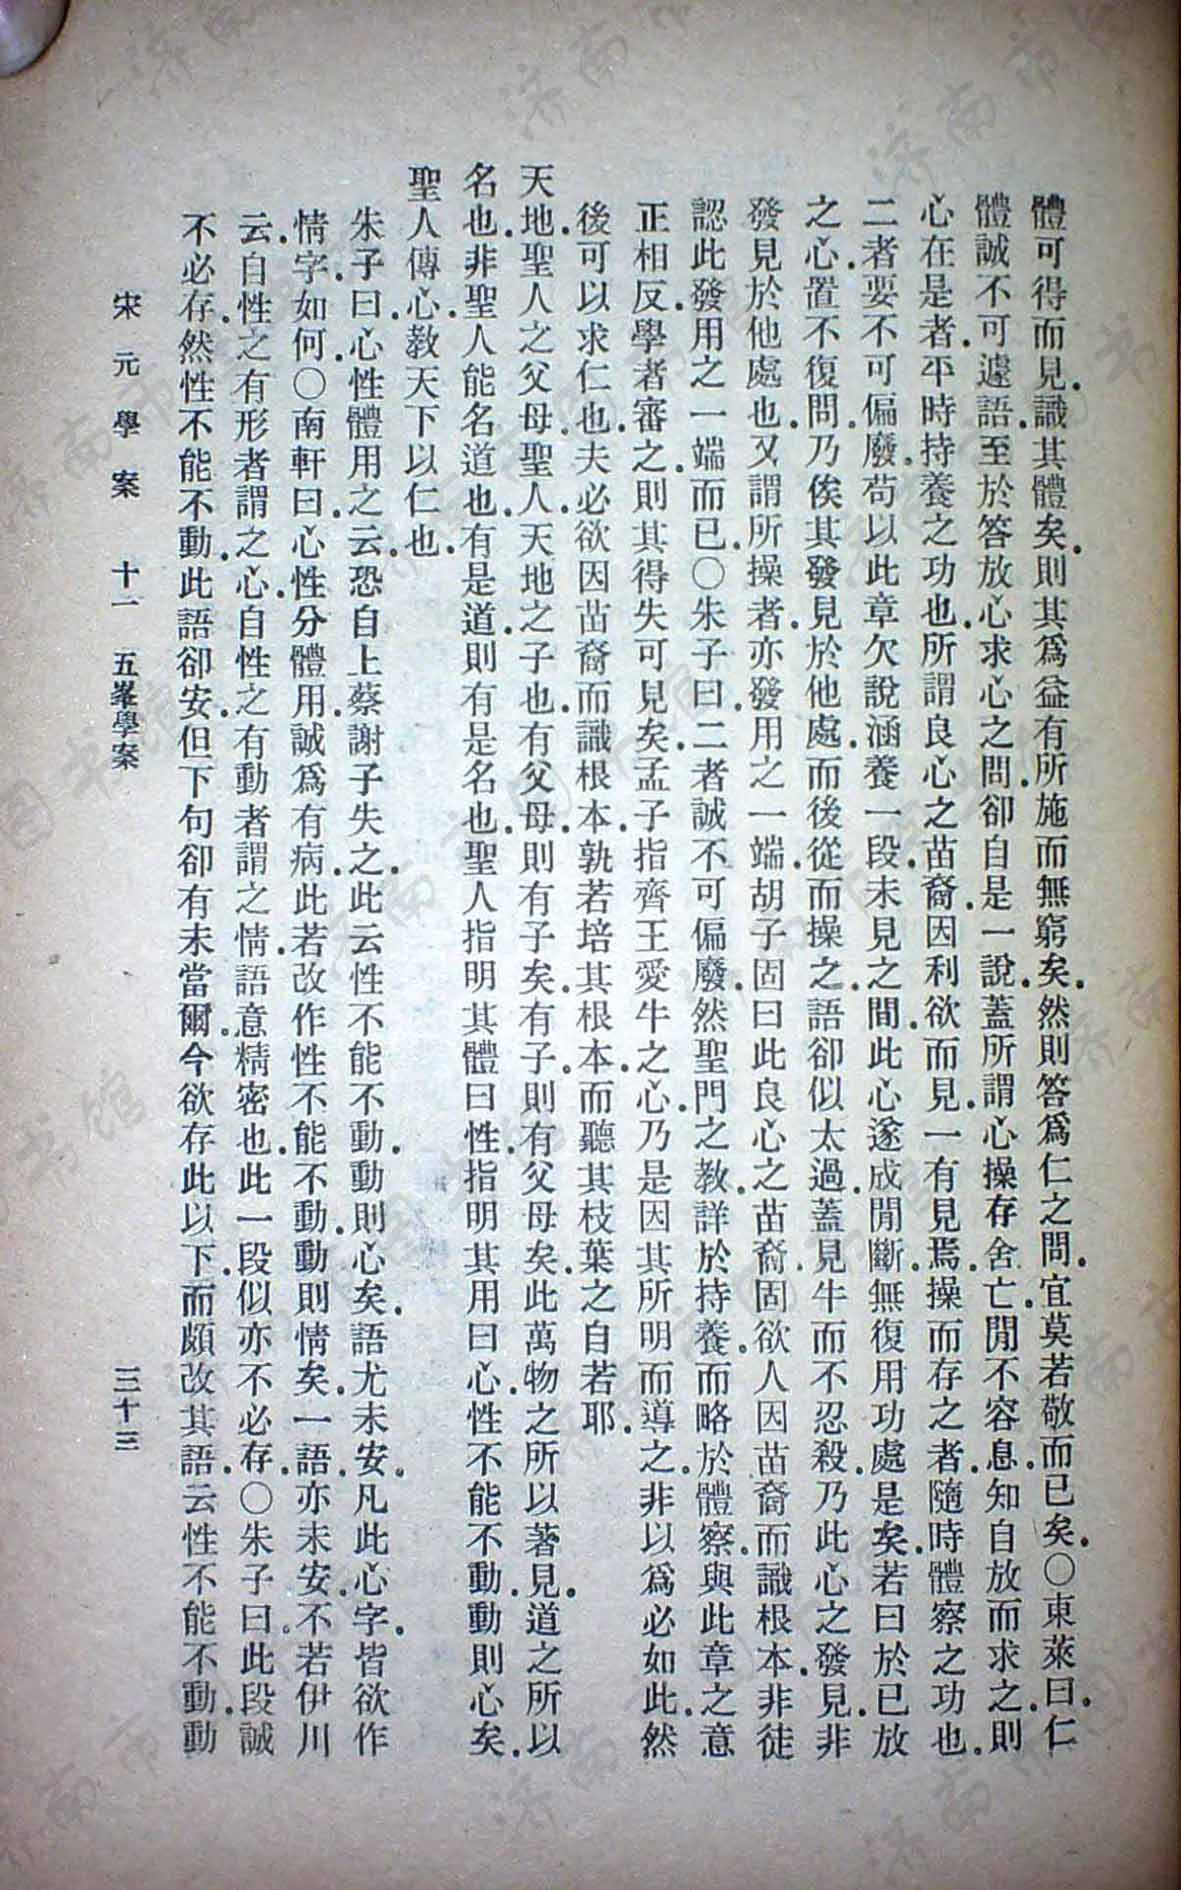 體可得而見.識其體矣.則其爲益有所施而無窮矣.然則答爲仁之問.宜莫若敬而已矣.○東萊曰.仁
體誠不可遽語.至於答放心求心之問.卻自是一說.蓋所謂心操存舍亡.閒不容息.知自放而求之.則
心在是者.平時持養之功也.所謂良心之苗裔.因利欲而見.一有見焉.操而存之者.隨時體察之功也.
二者要不可偏廢.苟以此章欠說涵養一段.未見之間.此心遂成閒斷.無復用功處是矣.若曰於已放
之心.置不復問.乃俟其發見於他處.而後從而操之.語卻似太過.蓋見牛而不忍殺.乃此心之發見.非
發見於他處也.又謂所操者.亦發用之一端.胡子固曰此良心之苗裔.固欲人因苗裔而識根本.非徒
認此發用之一端而已.○朱子曰.二者誠不可偏廢.然聖門之教.詳於持養.而略於體察.與此章之意
正相反.學者審之.則其得失可見矣.孟子指齊王愛牛之心.乃是因其所明而導之.非以爲必如此.然
後可以求仁也.夫必欲因苗裔而識根本.孰若培其根本.而聽其枝葉之自若耶.
天地.聖人之父母.聖人.天地之子也.有父母.則有子矣.有子.則有父母矣.此萬物之所以著見.道之所以
名也.非聖人能名道也.有是道.則有是名也.聖人指明其體曰性.指明其用曰心.性不能不動.動則心矣.
聖人傳心.教天下以仁也.
朱子曰.心性體用之云.恐自上蔡謝子失之.此云性不能不動.動則心矣.語尤未安.凡此心字.皆欲作
情字.如何.○南軒曰.心性分體用.誠爲有病.此若改作性不能不動.動則情矣.一語.亦未安.不若伊川
云.自性之有形者謂之心.自性之有動者謂之情.語意精密也.此一段似亦不必存.○朱子曰.此段誠
不必存.然性不能不動.此語卻安.但下句卻有未當爾.今欲存此以下.而頗改其語.云性不能不動.動
宋元學案 十一 五峯學案 三十三